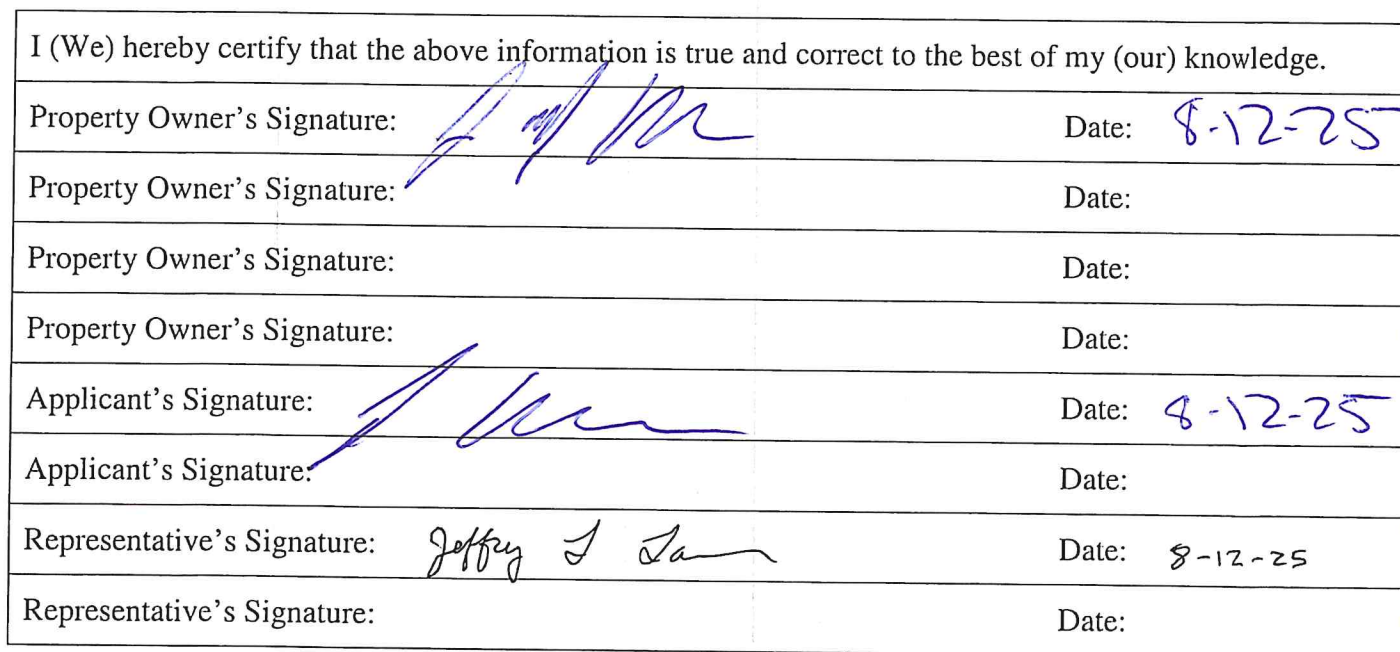 I (We) hereby certify that the above information is true and correct to the best of my (our) knowledge.
Property Owner's Signature: Date: 8-12-25
Property Owner's Signature: Date:
Property Owner's Signature: Date:
Property Owner's Signature: Date:
Applicant's Signature: Date: 8-12-25
Applicant's Signature: Date:
Representative's Signature: Jeffry Date: 8-12-25
Representative's Signature: Date: